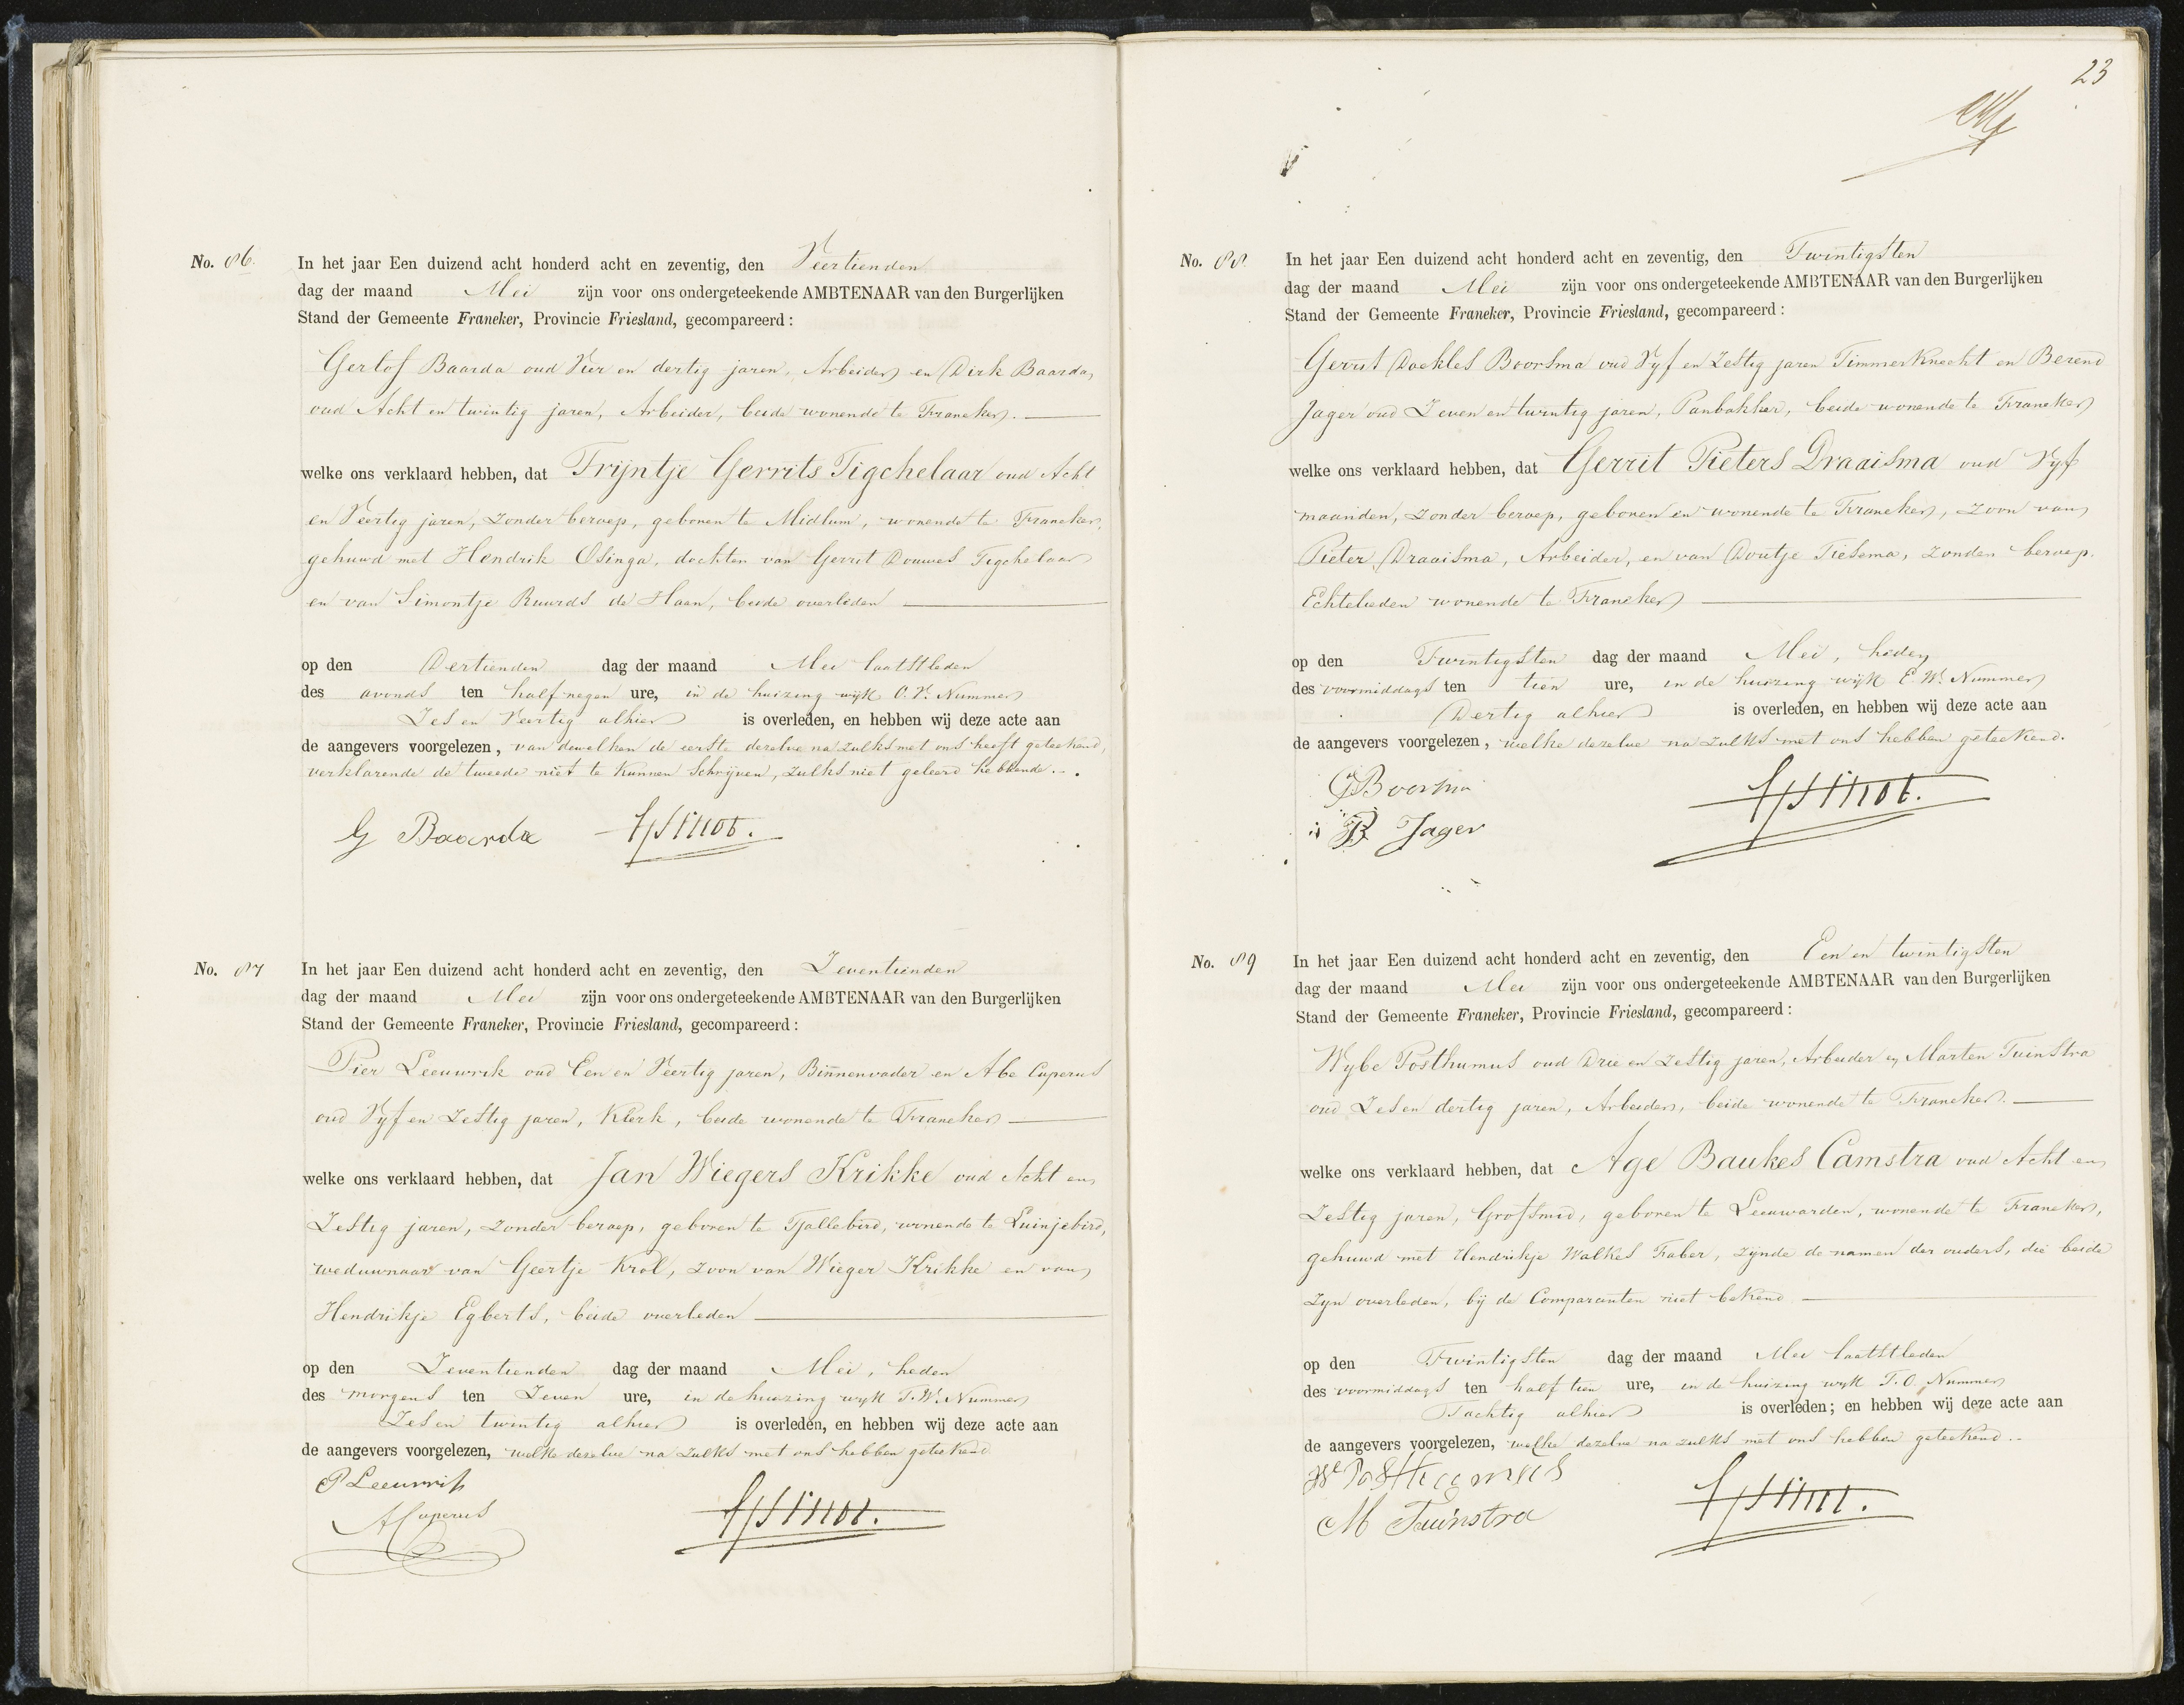 No. 86.
In het jaar Een duizend acht honderd acht en zeventig, den Veertienden
dag der maand Mei zijn voor ons ondergeteekende AMBTENAAR van den Burgerlijken
Stand der Gemeente Franeker, Provincie Friesland, gecompareerd:
Gerlof Baarda oud Vier en dertig jaren, Arbeider en Dirk Baarda,
oud Acht en twintig jaren, Arbeider, beide wonende te Franeker.
welke ons verklaard hebben, dat Trijntje Gerrits Tigchelaar oud Acht
en Veertig jaren, zonder beroep, geboren te Midlum, wonende te Franeker,
gehuwd met Hendrik Osinga, dochter van Gerrit Douwes Tigchelaar
en van Simontje Ruurds de Haan, beide overleden
op den Dertienden dag der maand Mei laatstleden
des avonds ten half negen ure, in de huizing wijk O. V. Nummer
Zes en Veertig alhier is overleden, en hebben wij deze acte aan
de aangevers voorgelezen, van dewelken de eerste dezelve na zulks met ons heeft geteekend,
verklarende de tweede niet te kunnen schrijven, zulks niet geleerd hebbende.
G Baarda
No. 87
In het jaar Een duizend acht honderd acht en zeventig, den Zeventienden
dag der maand Mei zijn voor ons ondergeteekende AMBTENAAR van den Burgerlijken
Stand der Gemeente Franeker, Provincie Friesland, gecompareerd:
Pier Leeuwrik oud Een en Veertig jaren, Binnenvader en Abe Cuperus
oud Vyf en Zestig jaren, Klerk, beide wonende te Franeker
welke ons verklaard hebben, dat Jan Wiegers Krikke oud Acht en
Zestig jaren, zonder beroep, geboren te Tjallebird, wonende te Luinjebird,
weduwnaar van Geertje Krol, zoon van Wieger Krikke en van
Hendrikje Egberts, beide overleden
op den Zeventienden dag der maand Mei, heden
des morgens ten Zeven ure, in de huizing wyk T. W. Nummer
Zes en twintig alhier is overleden, en hebben wij deze acte aan
de aangevers voorgelezen, welke dezelve na zulks met ons hebben geteekend
P Leeuwrik
A Cuperus
23
No. 88
In het jaar Een duizend acht honderd acht en zeventig, den Twintigsten
dag der maand Mei zijn voor ons ondergeteekende AMBTENAAR van den Burgerlijken
Stand der Gemeente Franeker, Provincie Friesland, gecompareerd:
Gerrit Doekles Boorsma oud Vyf en Zestig jaren Timmerknecht en Berend
Jager oud Zeven en twintig jaren, Panbakker, beide wonende te Franeker
welke ons verklaard hebben, dat Gerrit Pieters Draaisma oud Vyf
maanden, zonder beroep, geboren en wonende te Franeker, zoon van
Pieter Draaisma, Arbeider, en van Doutje Tiesema, zonder beroep.
Echtelieden wonende te Franeker
op den Twintigsten dag der maand Mei, heden
des voormiddags ten tien ure, in de huizing wijk E. W. Nummer
Dertig alhier is overleden, en hebben wij deze acte aan
de aangevers voorgelezen, welke dezelve na zulks met ons hebben geteekend.
G D Boorsma
B Jager
No. 89
In het jaar Een duizend acht honderd acht en zeventig, den Een en twintigsten
dag der maand Mei zijn voor ons ondergeteekende AMBTENAAR van den Burgerlijken
Stand der Gemeente Franeker, Provincie Friesland, gecompareerd:
Wybe Posthumus oud Drie en Zestig jaren, Arbeider en Marten Tuinstra
oud Zes en dertig jaren, Arbeider, beide wonende te Franeker.
welke ons verklaard hebben, dat Age Baukes Camstra oud Acht en
Zestig jaren, Grofsmid, geboren te Leeuwarden, wonende te Franeker,
gehuwd met Hendrikje Walkes Faber, zynde de namen der ouders, die beide
zyn overleden, bij de Comparanten niet bekend
op den Twintigsten dag der maand Mei laatstleden
des voormiddags ten half tien ure, in de huizing wyk T. O. Nummer
Tachtig alhier is overleden; en hebben wij deze acte aan
de aangevers voorgelezen, welke dezelve na zulks met ons hebben geteekend.
W Posthumus
M Tuinstra